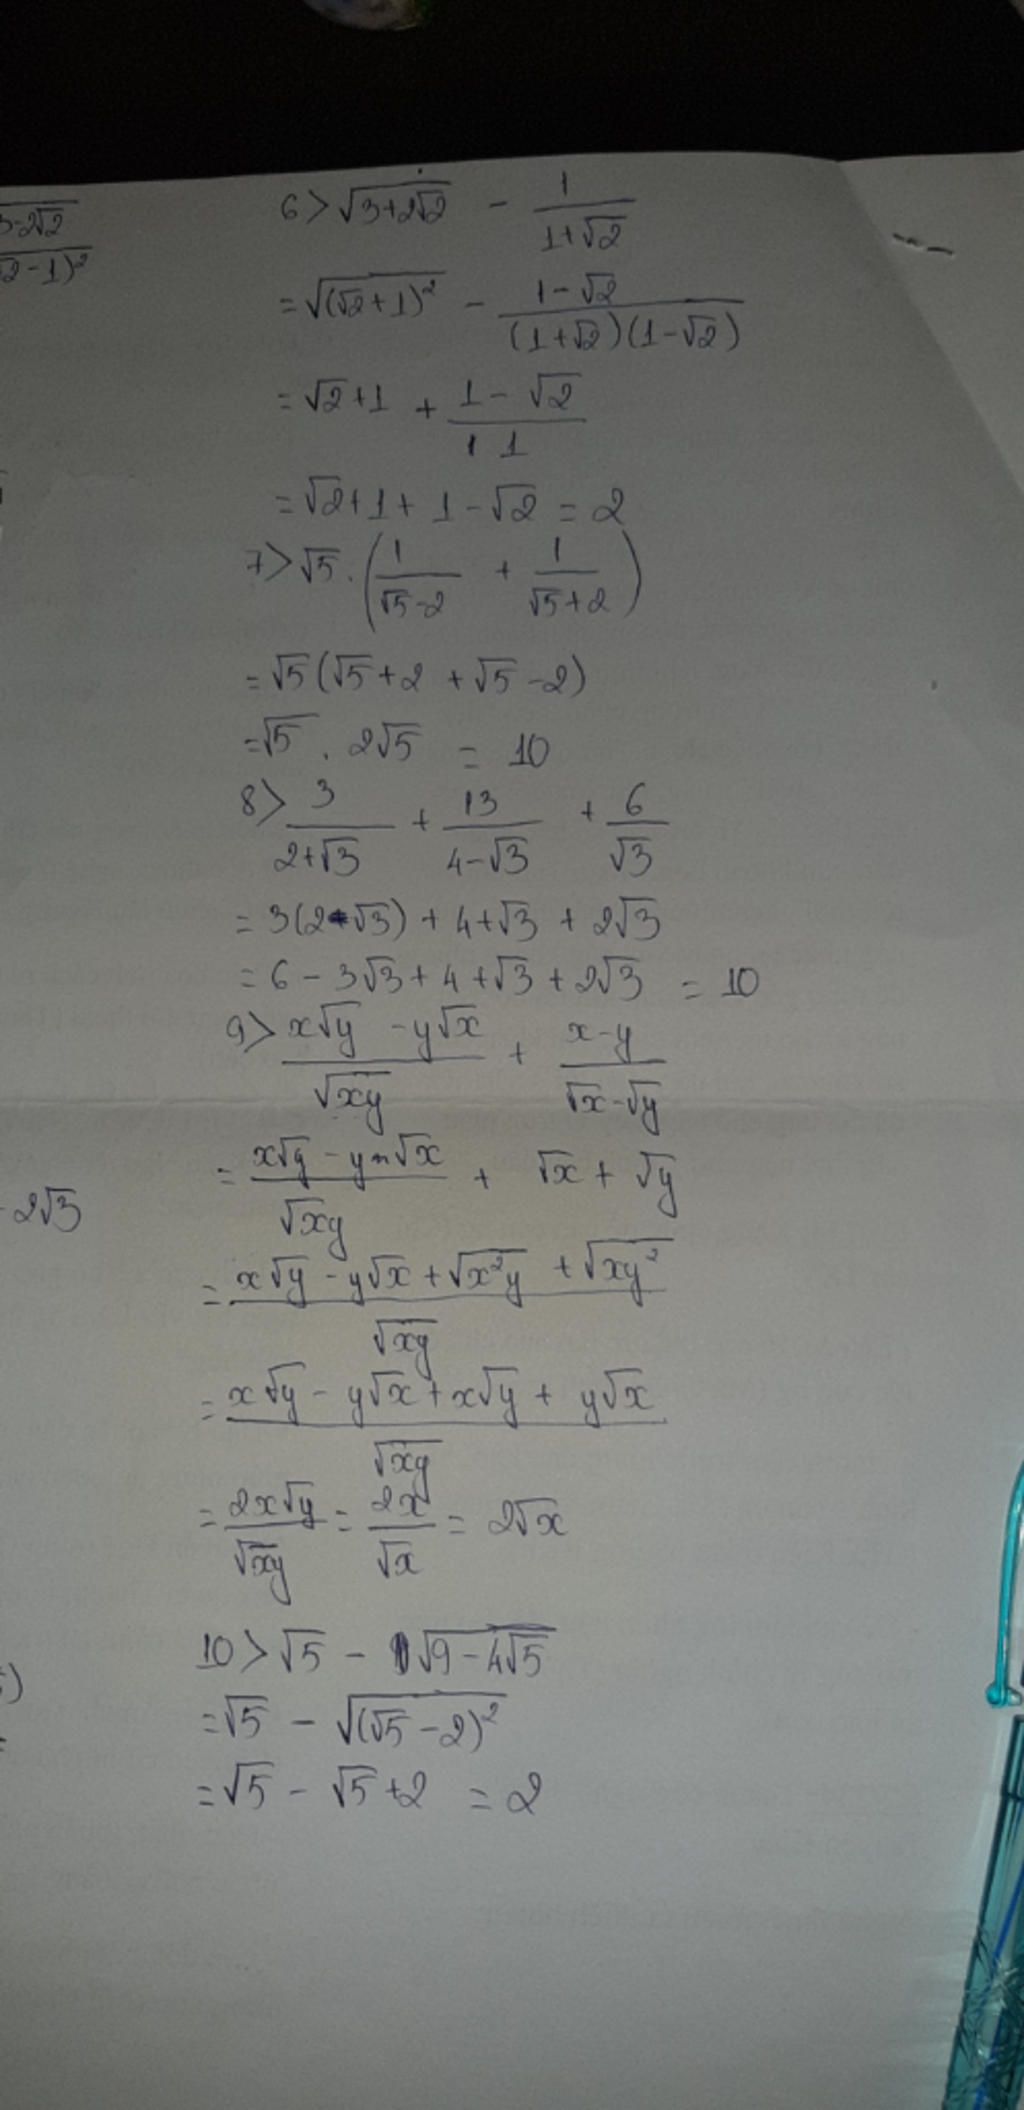 3-2√2
√2-1)²
6> √(3+2√2) - 1/(1+√2)
= √((√2+1)²) - (1-√2)/((1+√2)(1-√2))
= √2+1 + (1-√2)/1
= √2+1+1-√2 = 2
7> √5 . (1/(√5-2) + 1/(√5+2))
= √5(√5+2+√5-2)
= √5 . 2√5 = 10
8> 3/(2+√3) + 13/(4-√3) + 6/√3
= 3(2-√3) + 4+√3 + 2√3
= 6 - 3√3 + 4 + √3 + 2√3 = 10
9> (x√y - y√x)/√(xy) + (x-y)/(√x-√y)
= (x√y - y√x)/√(xy) + √x + √y
-2√3
= (x√y - y√x + √(x²y) + √(xy²))/√(xy)
= (x√y - y√x + x√y + y√x)/√(xy)
= 2x√y/√(xy) = 2x/√x = 2√x
10> √5 - √(9-4√5)
= √5 - √((√5-2)²)
= √5 - √5+2 = 2